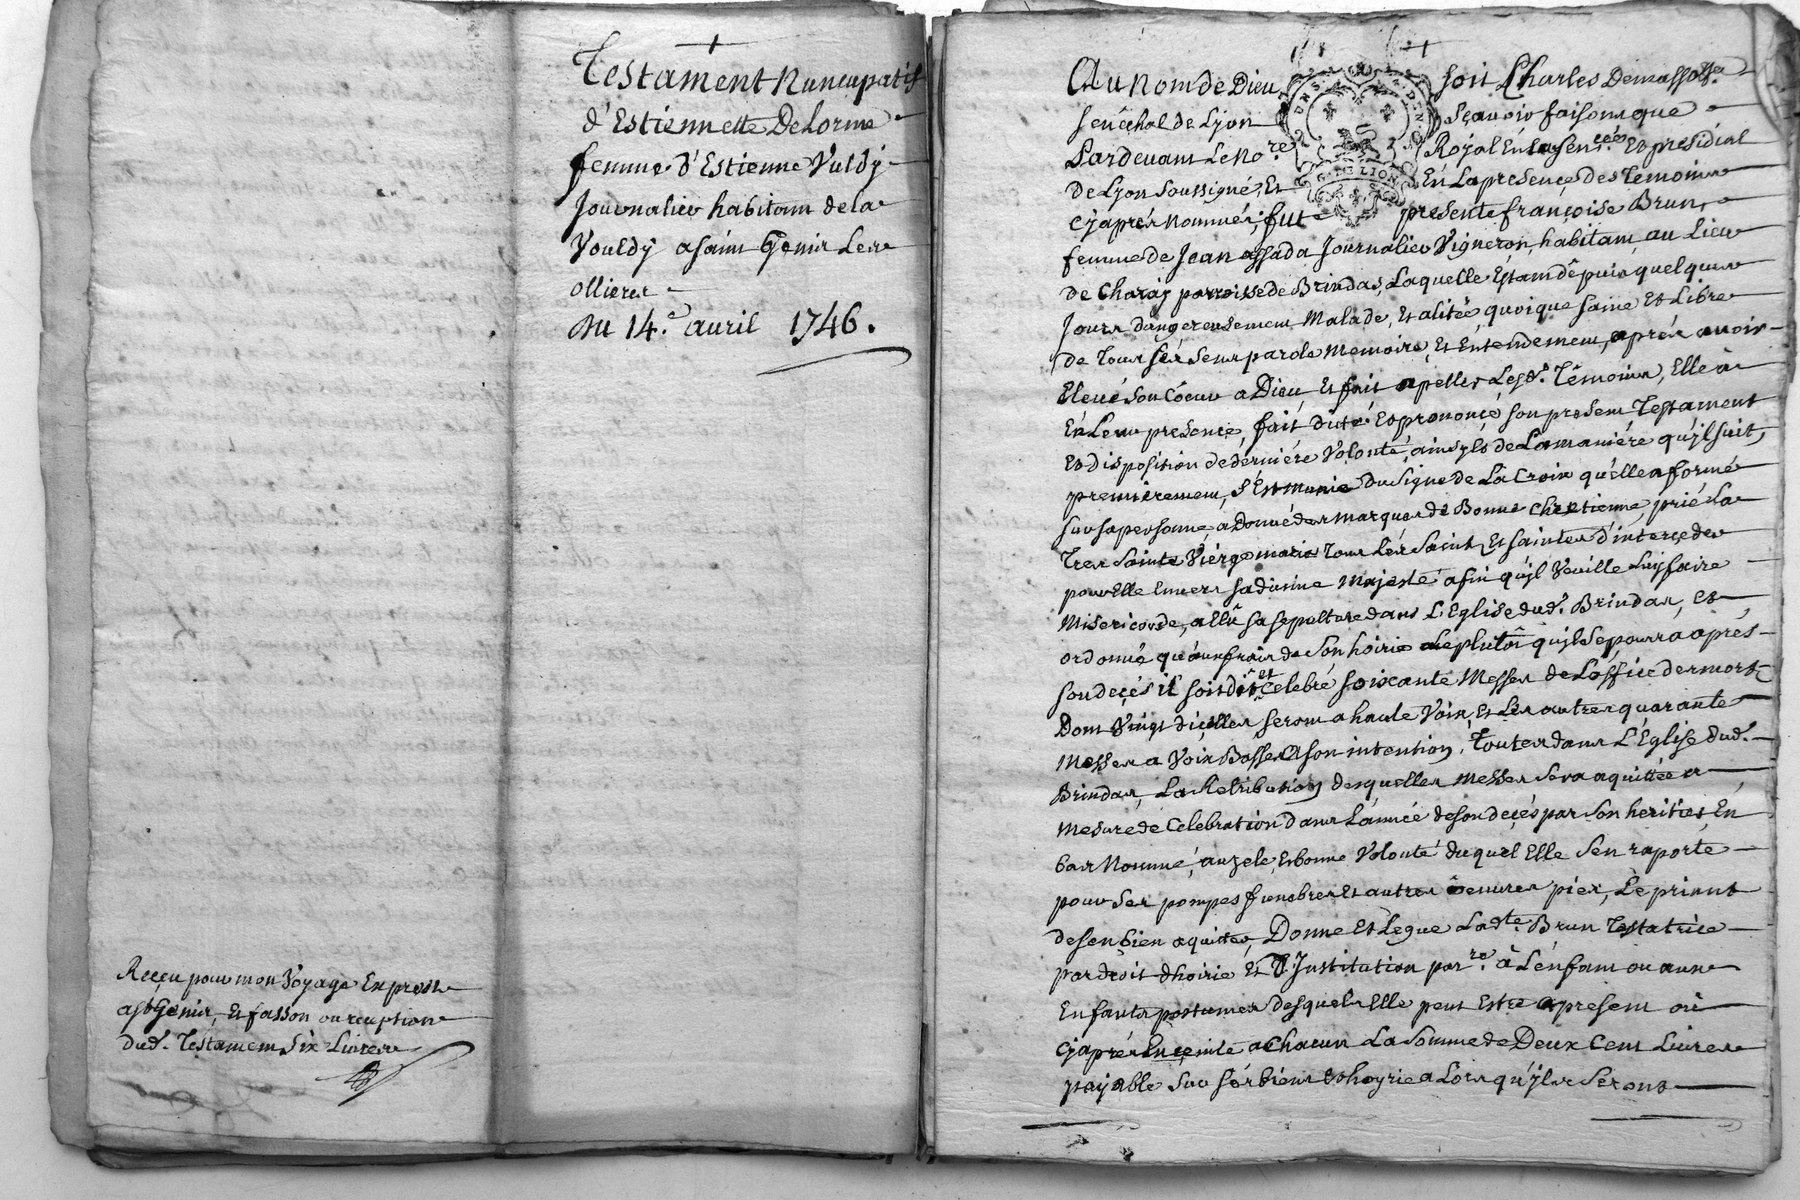 Testament Nuncupatif
d'Estiennette Delorme
femme d'Estienne Vuldÿ
Journalier habitant de la
Vouldÿ a saint Genis Les
ollieres
Du 14.e avril 1746.
Reçeu pour mon Voyage Expres
a st Genis, Et fasson ou reception
dud. Testament Six Livres
Au Nom de Dieu soit Charles Demasso
senêchal de Lyon Sçavoir faisons que
Pardevant Le No.re Roÿal En la Sen.cée Et presidial
de Lyon soussigné, Et En La presençe des Temoins
cÿ aprés nommés, fut presente françoise Brun,
femme de Jean assada Journalier Vigneron, habitant au Lieu
de Charaÿ parroisse de Brindas, Laquelle Estant dêpuis quelques
Jours dangereusement Malade, Et alitée quoique saine Et Libre
de Tous sés sens parole memoire, Et Entendement, aprés avoir
Elevé son Cóeur a Dieu, Et fait apeller Lesd. Têmoins, Elle à
En Leur presençe, fait dicté Et prononçé son present Testament
Et disposition de dernière Volonté, ainsy Et de La manière qu'jl suit,
premierement, s'Est munie du signe de La Croix qu'elle a formé
sur sa personne, a Donné des marques de Bonne Chretienne, prié La
Tres Sainte Viérge marie Tous Lés Saints Et saintes d'interçeder
pour Elle Envers sa divine Majesté afin qu'jl Veuille Luÿ faire
Misericorde, a Elû sa sepulture dans L'Eglise dud. Brindas, Et
ordonné qu'aux frais de son hoirie Le plutôt qu'jl se pourra aprés
son deçés il soit dit et Celebré soixante Messes de L'óffice des morts
Dont Vingt d'içelles seront a haute Voix, Et Les autres quarante
Messes a Voix Basse a son intention, Toutes dans L'Église dud.
Brindas, La Retribution desquelles Messes sera aquittée a
Mesure de Celebration dans L'année de son deçés par son heritier En
bas Nommé, au zele, Et bonne Volonté duquel Elle s'en raporte
pour Ses pompes funebres Et autres Oeuvres pies, Le priant
de s'en bien aquitter, Donne Et Legue La d.te Brun Testatriçe
par droit d'hoirie Et D'Institution par.re à L'énfant ou aux
Enfants postumes desquels Elle peut Estre a present où
cÿ aprés Ençeinte a Chacun La Somme de Deux Cent Livres
payable sur sés biens Et hoyrie a Lors qu'jls Seront